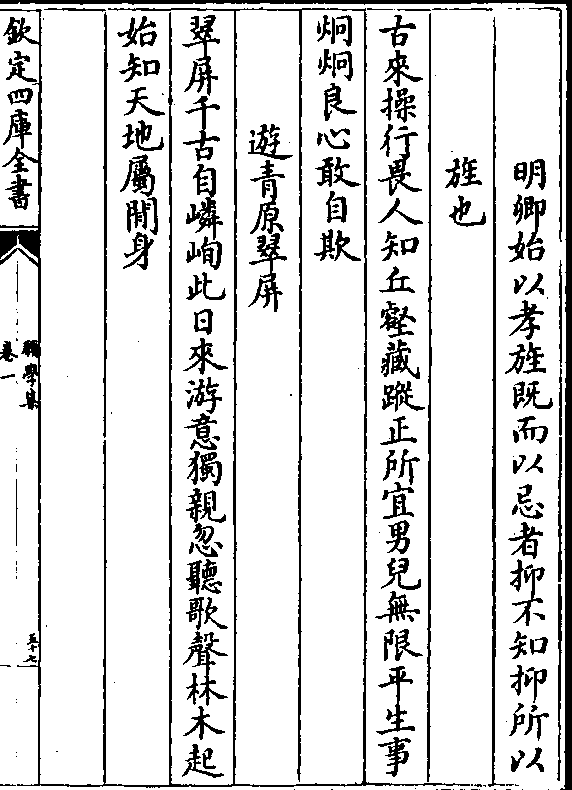 明卿始以孝旌既而以忌者抑不知抑所以
旌也
古來操行畏人知丘壑藏蹤正所宜男兒無限平生事
炯炯良心敢自欺
遊青原翠屏
翠屏千古自嶙峋此日來游意獨親忽聽歌聲林木起
始知天地屬閒身
欽定四庫全書
獨學集
卷一
五十七